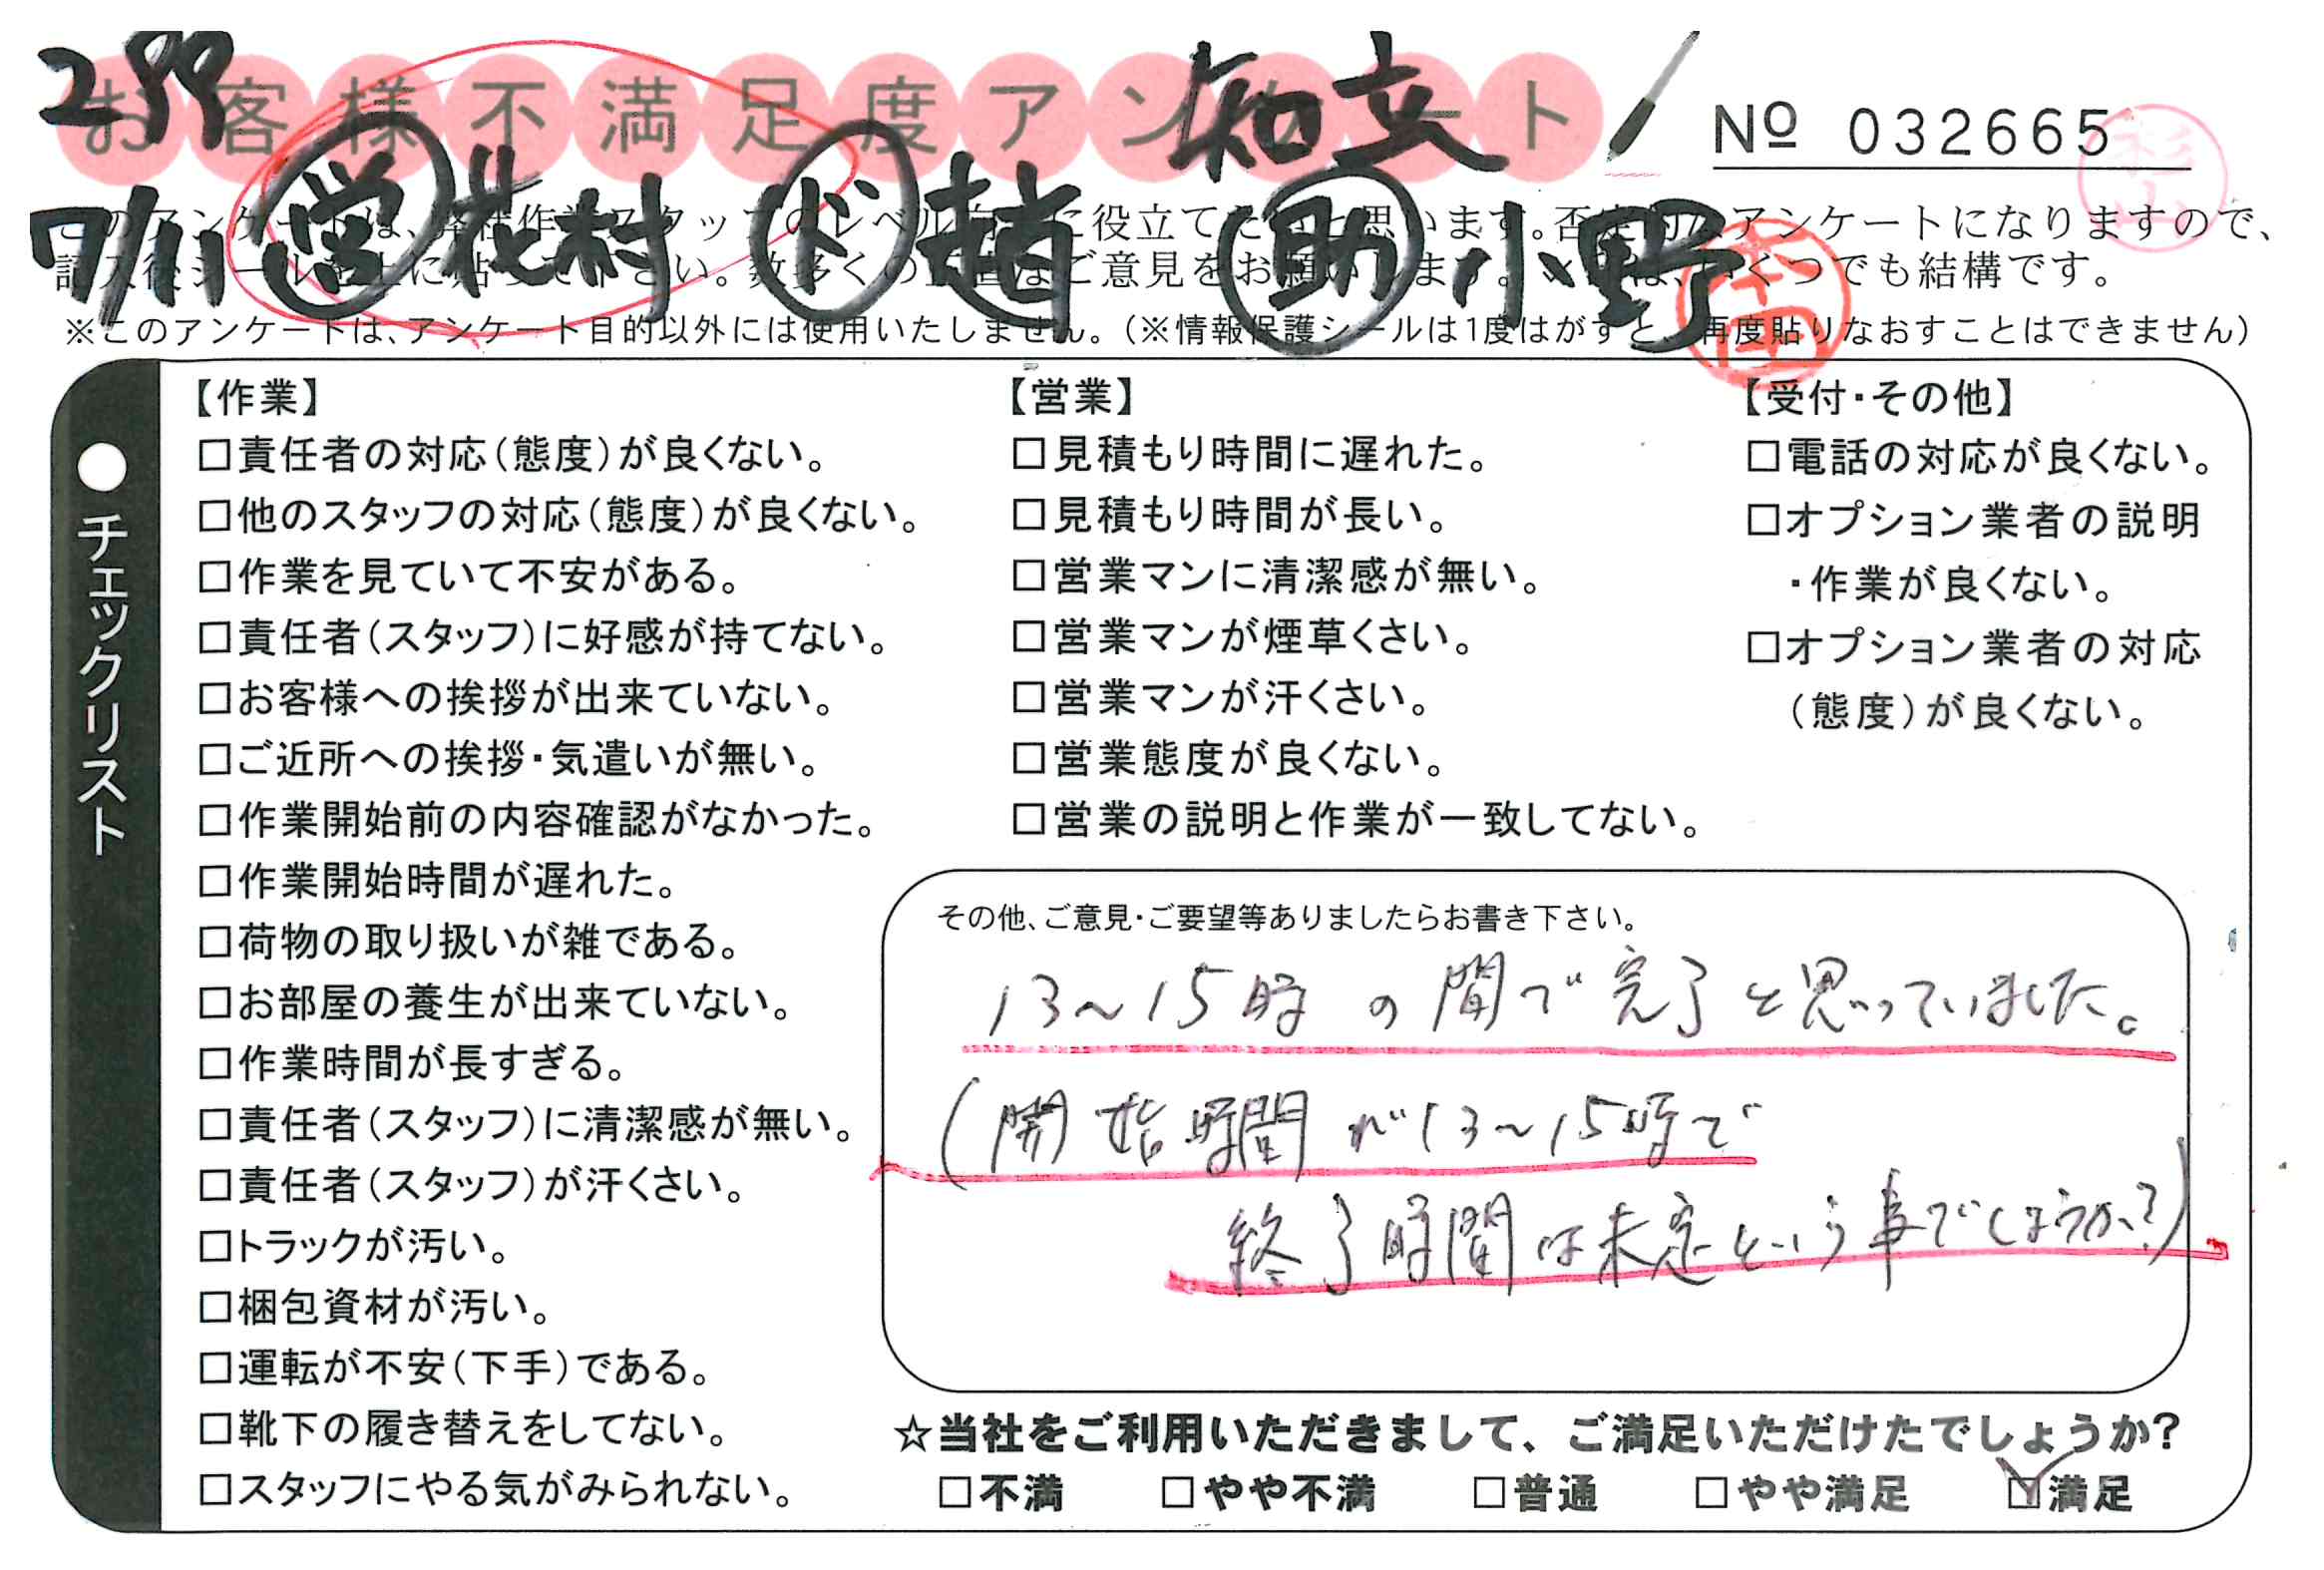 299
お客様不満足度アンケート
知立
№ 032665
杉山
7/11 営 花村 ド 趙 助 小野
このアンケートは、弊社作業スタッフのレベル に役立て 思います。否定的 アンケートになりますので、
記入後シールを上に貼って下さい。数多くの ご意見をお願いします。 いくつでも結構です。
※このアンケートは、アンケート目的以外には使用いたしません。(※情報保護シールは1度はがすと、再度貼りなおすことはできません)
●チェックリスト
【作業】
□責任者の対応(態度)が良くない。
□他のスタッフの対応(態度)が良くない。
□作業を見ていて不安がある。
□責任者(スタッフ)に好感が持てない。
□お客様への挨拶が出来ていない。
□ご近所への挨拶・気遣いが無い。
□作業開始前の内容確認がなかった。
□作業開始時間が遅れた。
□荷物の取り扱いが雑である。
□お部屋の養生が出来ていない。
□作業時間が長すぎる。
□責任者(スタッフ)に清潔感が無い。
□責任者(スタッフ)が汗くさい。
□トラックが汚い。
□梱包資材が汚い。
□運転が不安(下手)である。
□靴下の履き替えをしてない。
□スタッフにやる気がみられない。
【営業】
□見積もり時間に遅れた。
□見積もり時間が長い。
□営業マンに清潔感が無い。
□営業マンが煙草くさい。
□営業マンが汗くさい。
□営業態度が良くない。
□営業の説明と作業が一致してない。
【受付・その他】
□電話の対応が良くない。
□オプション業者の説明
・作業が良くない。
□オプション業者の対応
(態度)が良くない。
その他、ご意見・ご要望等ありましたらお書き下さい。
13~15時の間で完了と思っていました。
(開始時間が13~15時で
終了時間は未定という事でしょうか?)
☆当社をご利用いただきまして、ご満足いただけたでしょうか?
□不満 □やや不満 □普通 □やや満足 ☑満足